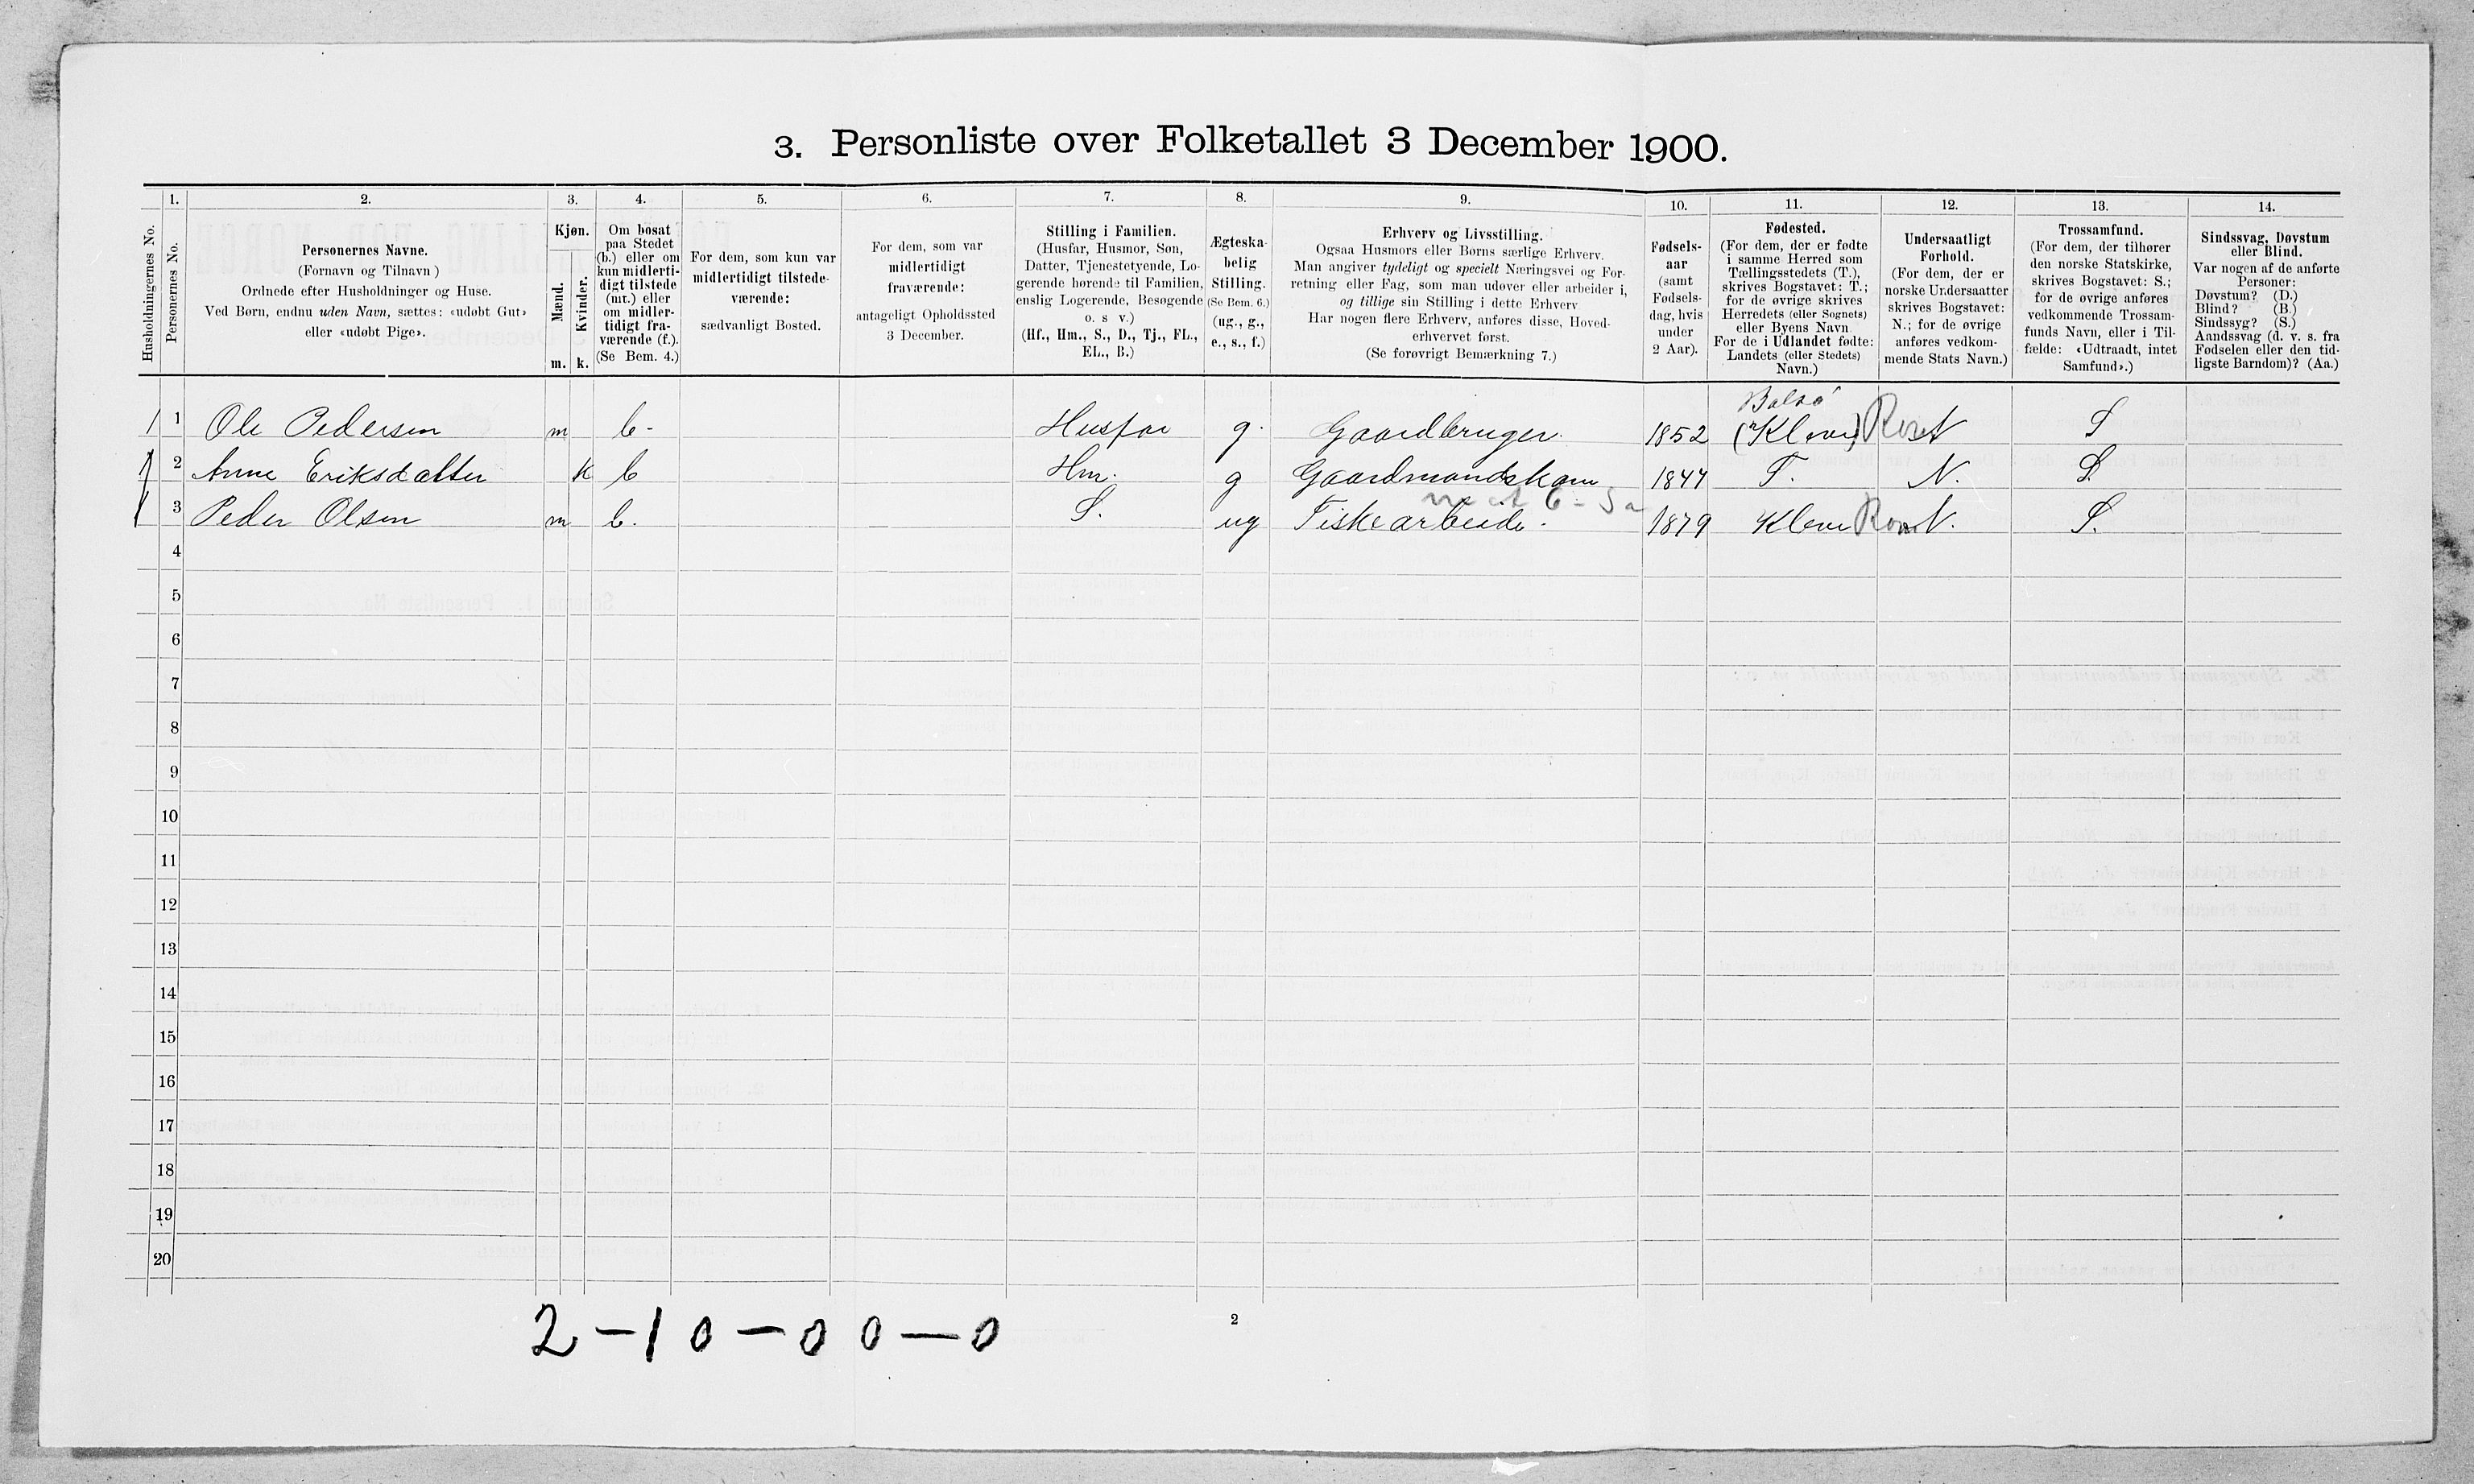 3. Personliste over Folketallet 3 December 1900.
Husholdningernes No.
1.
Personernes No.
2.
Personernes Navne.
(Fornavn og Tilnavn)
Ordnede efter Husholdninger og Huse.
Ved Børn, endnu uden Navn, sættes: «udøbt Gut»
eller «udøbt Pige».
3.
Kjøn.
Mænd.
Kvinder.
m. k.
4.
Om bosat
paa Stedet
(b.) eller om
kun midlerti-
digt tilstede
(mt.) eller
om midler-
tidigt fra-
værende (f.).
(Se Bem. 4.)
5.
For dem, som kun var
midlertidigt tilstede-
værende:
sædvanligt Bosted.
6.
For dem, som var
midlertidigt
fraværende:
antageligt Opholdssted
3 December.
7.
Stilling i Familien.
(Husfar, Husmor, Søn,
Datter, Tjenestetyende, Lo-
gerende hørende til Familien,
enslig Logerende, Besøgende
o. s v.)
(Hf., Hm., S., D., Tj., FL.,
EL., B.)
8.
Ægteska-
belig
Stilling.
(Se Bem. 6.)
(ug., g.,
e., s., f.)
9.
Erhverv og Livsstilling.
Ogsaa Husmors eller Børns særlige Erhverv.
Man angiver tydeligt og specielt Næringsvei og For-
retning eller Fag, som man udøver eller arbeider i,
og tillige sin Stilling i dette Erhverv
Har nogen flere Erhverv, anføres disse, Hoved-
erhvervet først.
(Se forøvrigt Bemærkning 7.)
10.
Fødsels-
aar
(samt
Fødsels-
dag, hvis
under
2 Aar).
11.
Fødested.
(For dem, der er fødte
i samme Herred som
Tællingsstedets (T.),
skrives Bogstavet: T.;
for de øvrige skrives
Herredets (eller Sognets)
eller Byens Navn
For de i Udlandet fødte:
Landets (eller Stedets)
Navn.)
12.
Undersaatligt
Forhold.
(For dem, der er
norske Undersaatter
skrives Bogstavet:
N.; for de øvrige
anføres vedkom-
mende Stats Navn.)
13.
Trossamfund.
(For dem, der tilhører
den norske Statskirke,
skrives Bogstavet: S.;
for de øvrige anføres
vedkommende Trossam-
funds Navn, eller i Til-
fælde: «Udtraadt, intet
Samfund».)
14.
Sindssvag, Døvstum
eller Blind.
Var nogen af de anførte
Personer:
Døvstum? (D.)
Blind? (B.)
Sindssyg? (S.)
Aandssvag (d. v. s. fra
Fødselen eller den tid-
ligste Barndom)? (Aa.)
1 1 Ole Pedersen m b- Husfar g. Gaardbruger. 1852 N S
2 Anne Eriksdatter k b Hm. g Gaardmandskone 1847 T. N. S
3 Peder Olsen m b. S. ug Fiskearbeide. 1879 N. S.
4
5
6
7
8
9
10
11
12
13
14
15
16
17
18
19
20
2-10-00-0
2